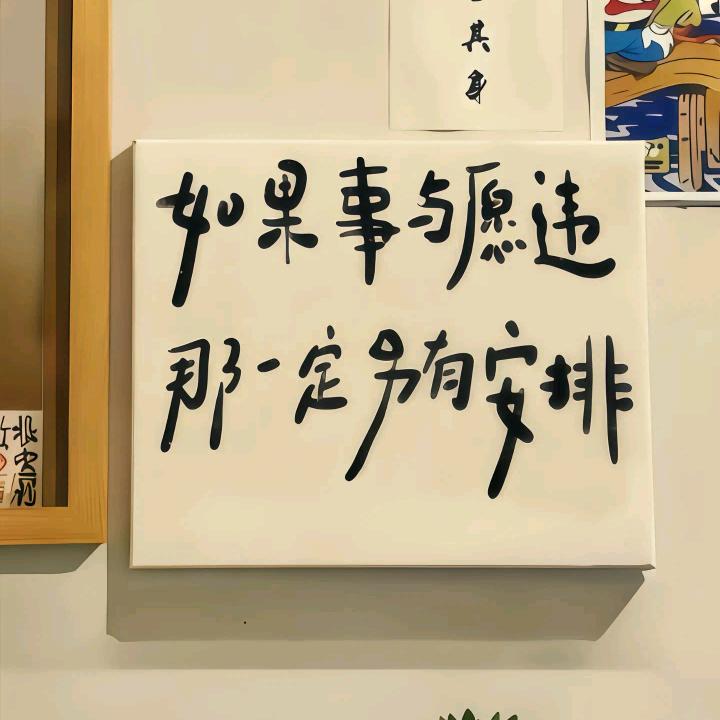 其身
如果事与愿违
那一定另有安排